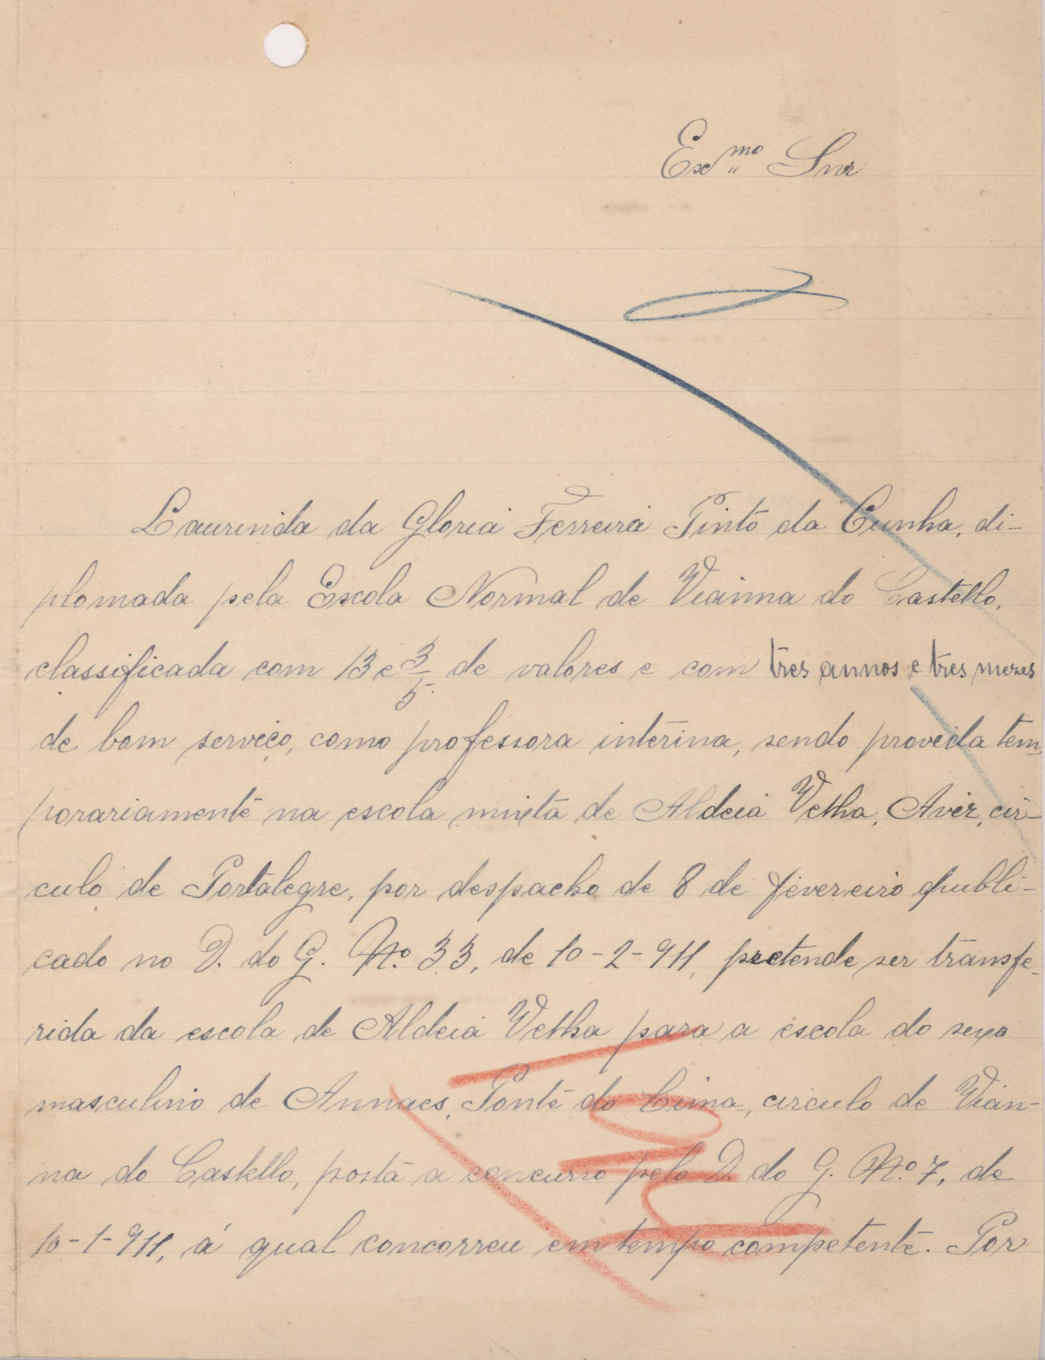 Ex.mo Snr
Laurinda da Gloria Ferreira Pinto da Cunha, di-
plomada pela Escola Normal de Vianna do Castello,
classificada com 13 e 3/5 de valores e com tres annos e tres mezes
de bom serviço, como professora interina, sendo provida tem-
porariamente na escola mixta de Aldeia Velha, Aviz, cir-
culo de Portalegre, por despacho de 8 de fevereiro publi-
cado no D. do G. No. 33, de 10-2-911, pretende ser transfe-
rida da escola de Aldeia Velha para a escola do sexo
masculino de Annaes, Ponte do Lima, circulo de Vian-
na do Castello, posta a concurso pelo D. do G. No. 7, de
10-1-911, á qual concorreu em tempo competente. Por